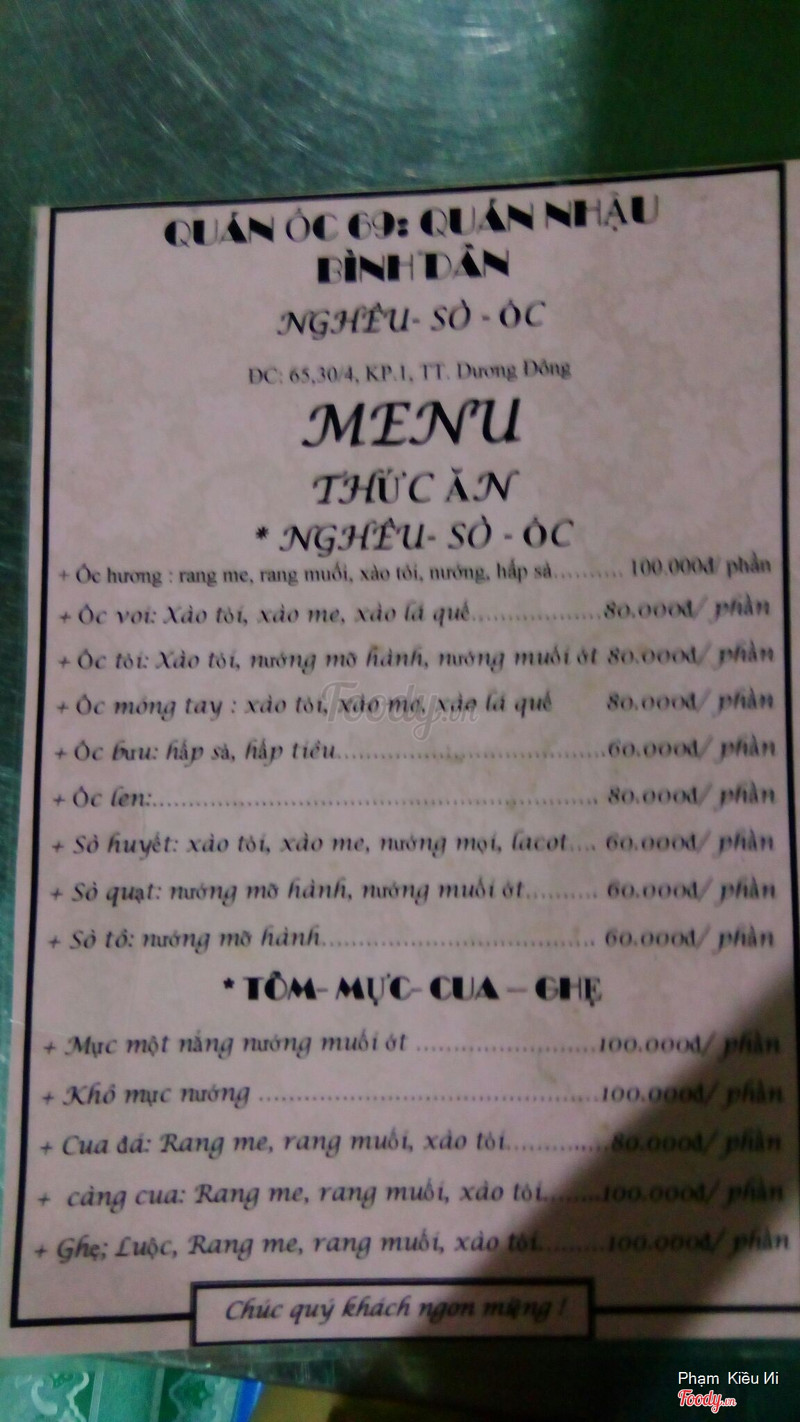 QUÁN ỐC 69: QUÁN NHẬU
BÌNH DÂN
NGHÊU- SÒ - ỐC
ĐC: 65,30/4, KP.1, TT. Dương Đông
MENU
THỨC ĂN
* NGHÊU- SÒ - ỐC
+ Ốc hương : rang me, rang muối, xào tỏi, nướng, hấp sả........... 100.000đ/ phần
+ Ốc voi: Xào tỏi, xào me, xào lá quế.................80.000đ/ phần
+ Ốc tỏi: Xào tỏi, nướng mỡ hành, nướng muối ớt 80.000đ/ phần
+ Ốc móng tay : xào tỏi, xào me, xào lá quế 80.000đ/ phần
+ Ốc bưu: hấp sả, hấp tiêu...................................60.000đ/ phần
+ Ốc len:.......................................................... 80.000đ/ phần
+ Sò huyết: xào tỏi, xào me, nướng mọi, lacot.... 60.000đ/ phần
+ Sò quạt: nướng mỡ hành, nướng muối ớt.......... 60.000đ/ phần
+ Sò tô: nướng mỡ hành.................................... 60.000đ/ phần
* TÔM- MỰC- CUA – GHẸ
+ Mực một nắng nướng muối ớt ........................100.000đ/ phần
+ Khô mực nướng .............................................100.000đ/ phần
+ Cua đá: Rang me, rang muối, xào tỏi.............80.000đ/ phần
+ càng cua: Rang me, rang muối, xào tỏi........100.000đ/ phần
+ Ghẹ; Luộc, Rang me, rang muối, xào tỏi.........100.000đ/ phần
Chúc quý khách ngon miệng !
Foody.vn
Phạm Kiều Ni
Foody.vn